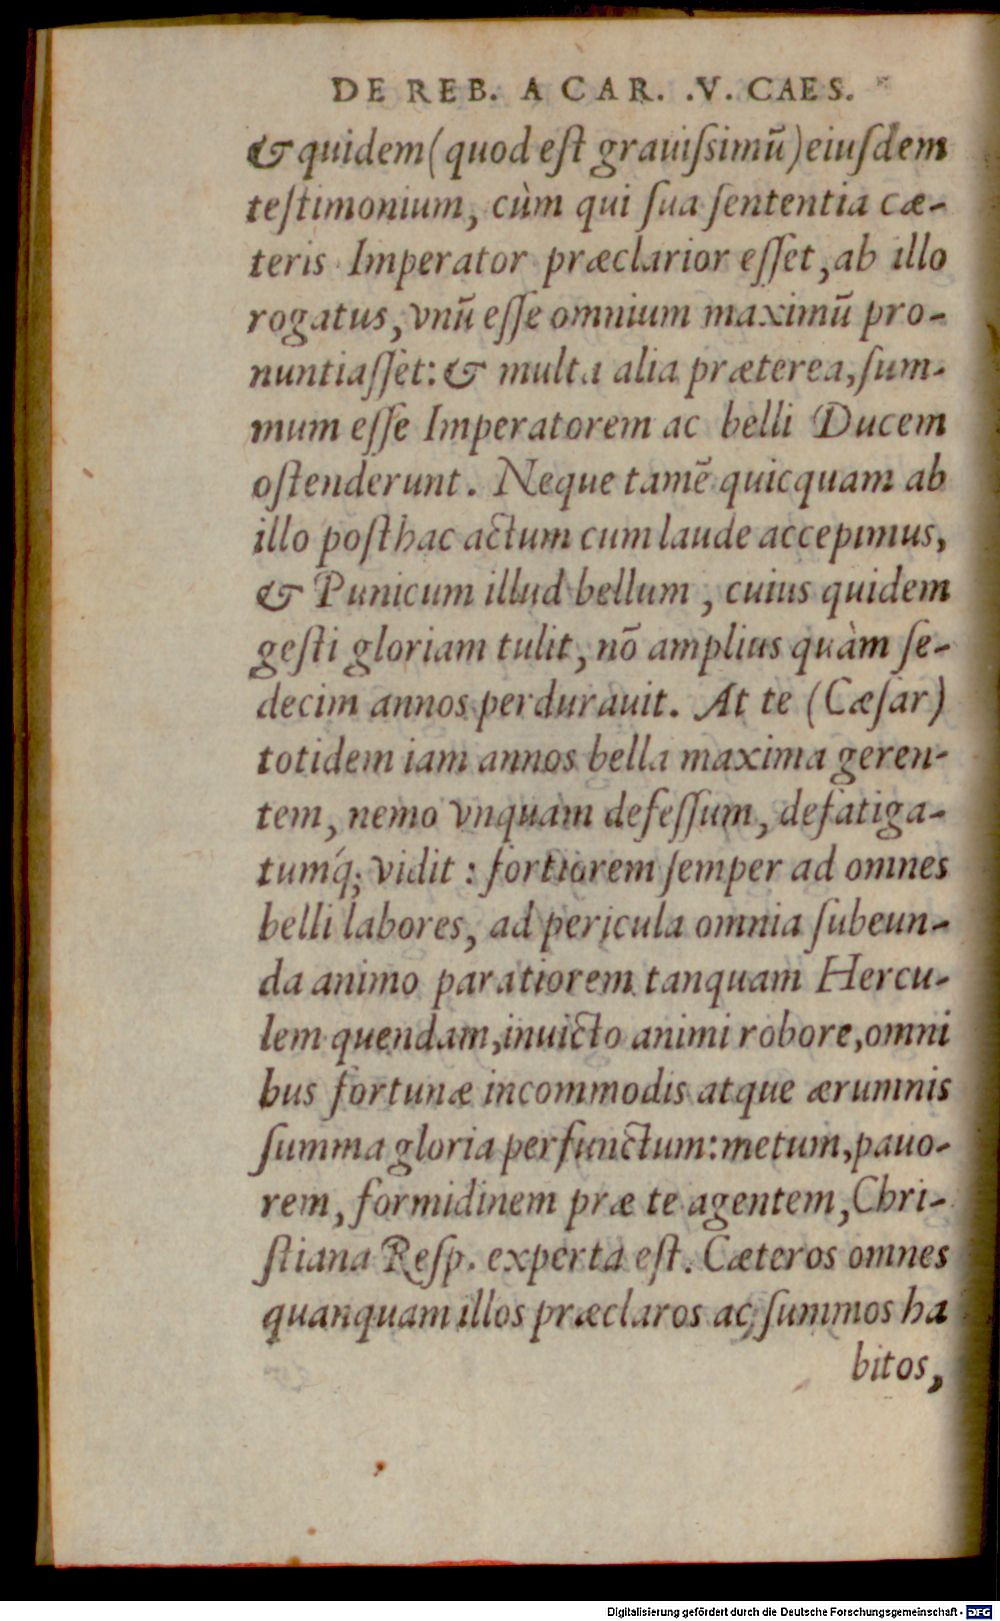 DE REB. A CAR. .V. CAES.
& quidem (quod est grauissimũ) eiusdem
testimonium, cùm qui sua sententia cæ-
teris Imperator præclarior esset, ab illo
rogatus, vnũ esse omnium maximũ pro-
nuntiasset: & multa alia præterea, sum-
mum esse Imperatorem ac belli Ducem
ostenderunt. Neque tamẽ quicquam ab
illo posthac actum cum laude accepimus,
& Punicum illud bellum, cuius quidem
gesti gloriam tulit, nõ amplius quàm se-
decim annos perdurauit. At te (Cæsar)
totidem iam annos bella maxima geren-
tem, nemo vnquam defessum, defatiga-
tumq́; vidit: fortiorem semper ad omnes
belli labores, ad pericula omnia subeun-
da animo paratiorem tanquam Hercu-
lem quendam, inuicto animi robore, omni
bus fortunæ incommodis atque ærumnis
summa gloria perfunctum: metum, pauo-
rem, formidinem præ te agentem, Chri-
stiana Resp. experta est. Cæteros omnes
quanquam illos præclaros ac summos ha
bitos,
Digitalisierung gefördert durch die Deutsche Forschungsgemeinschaft - DFG